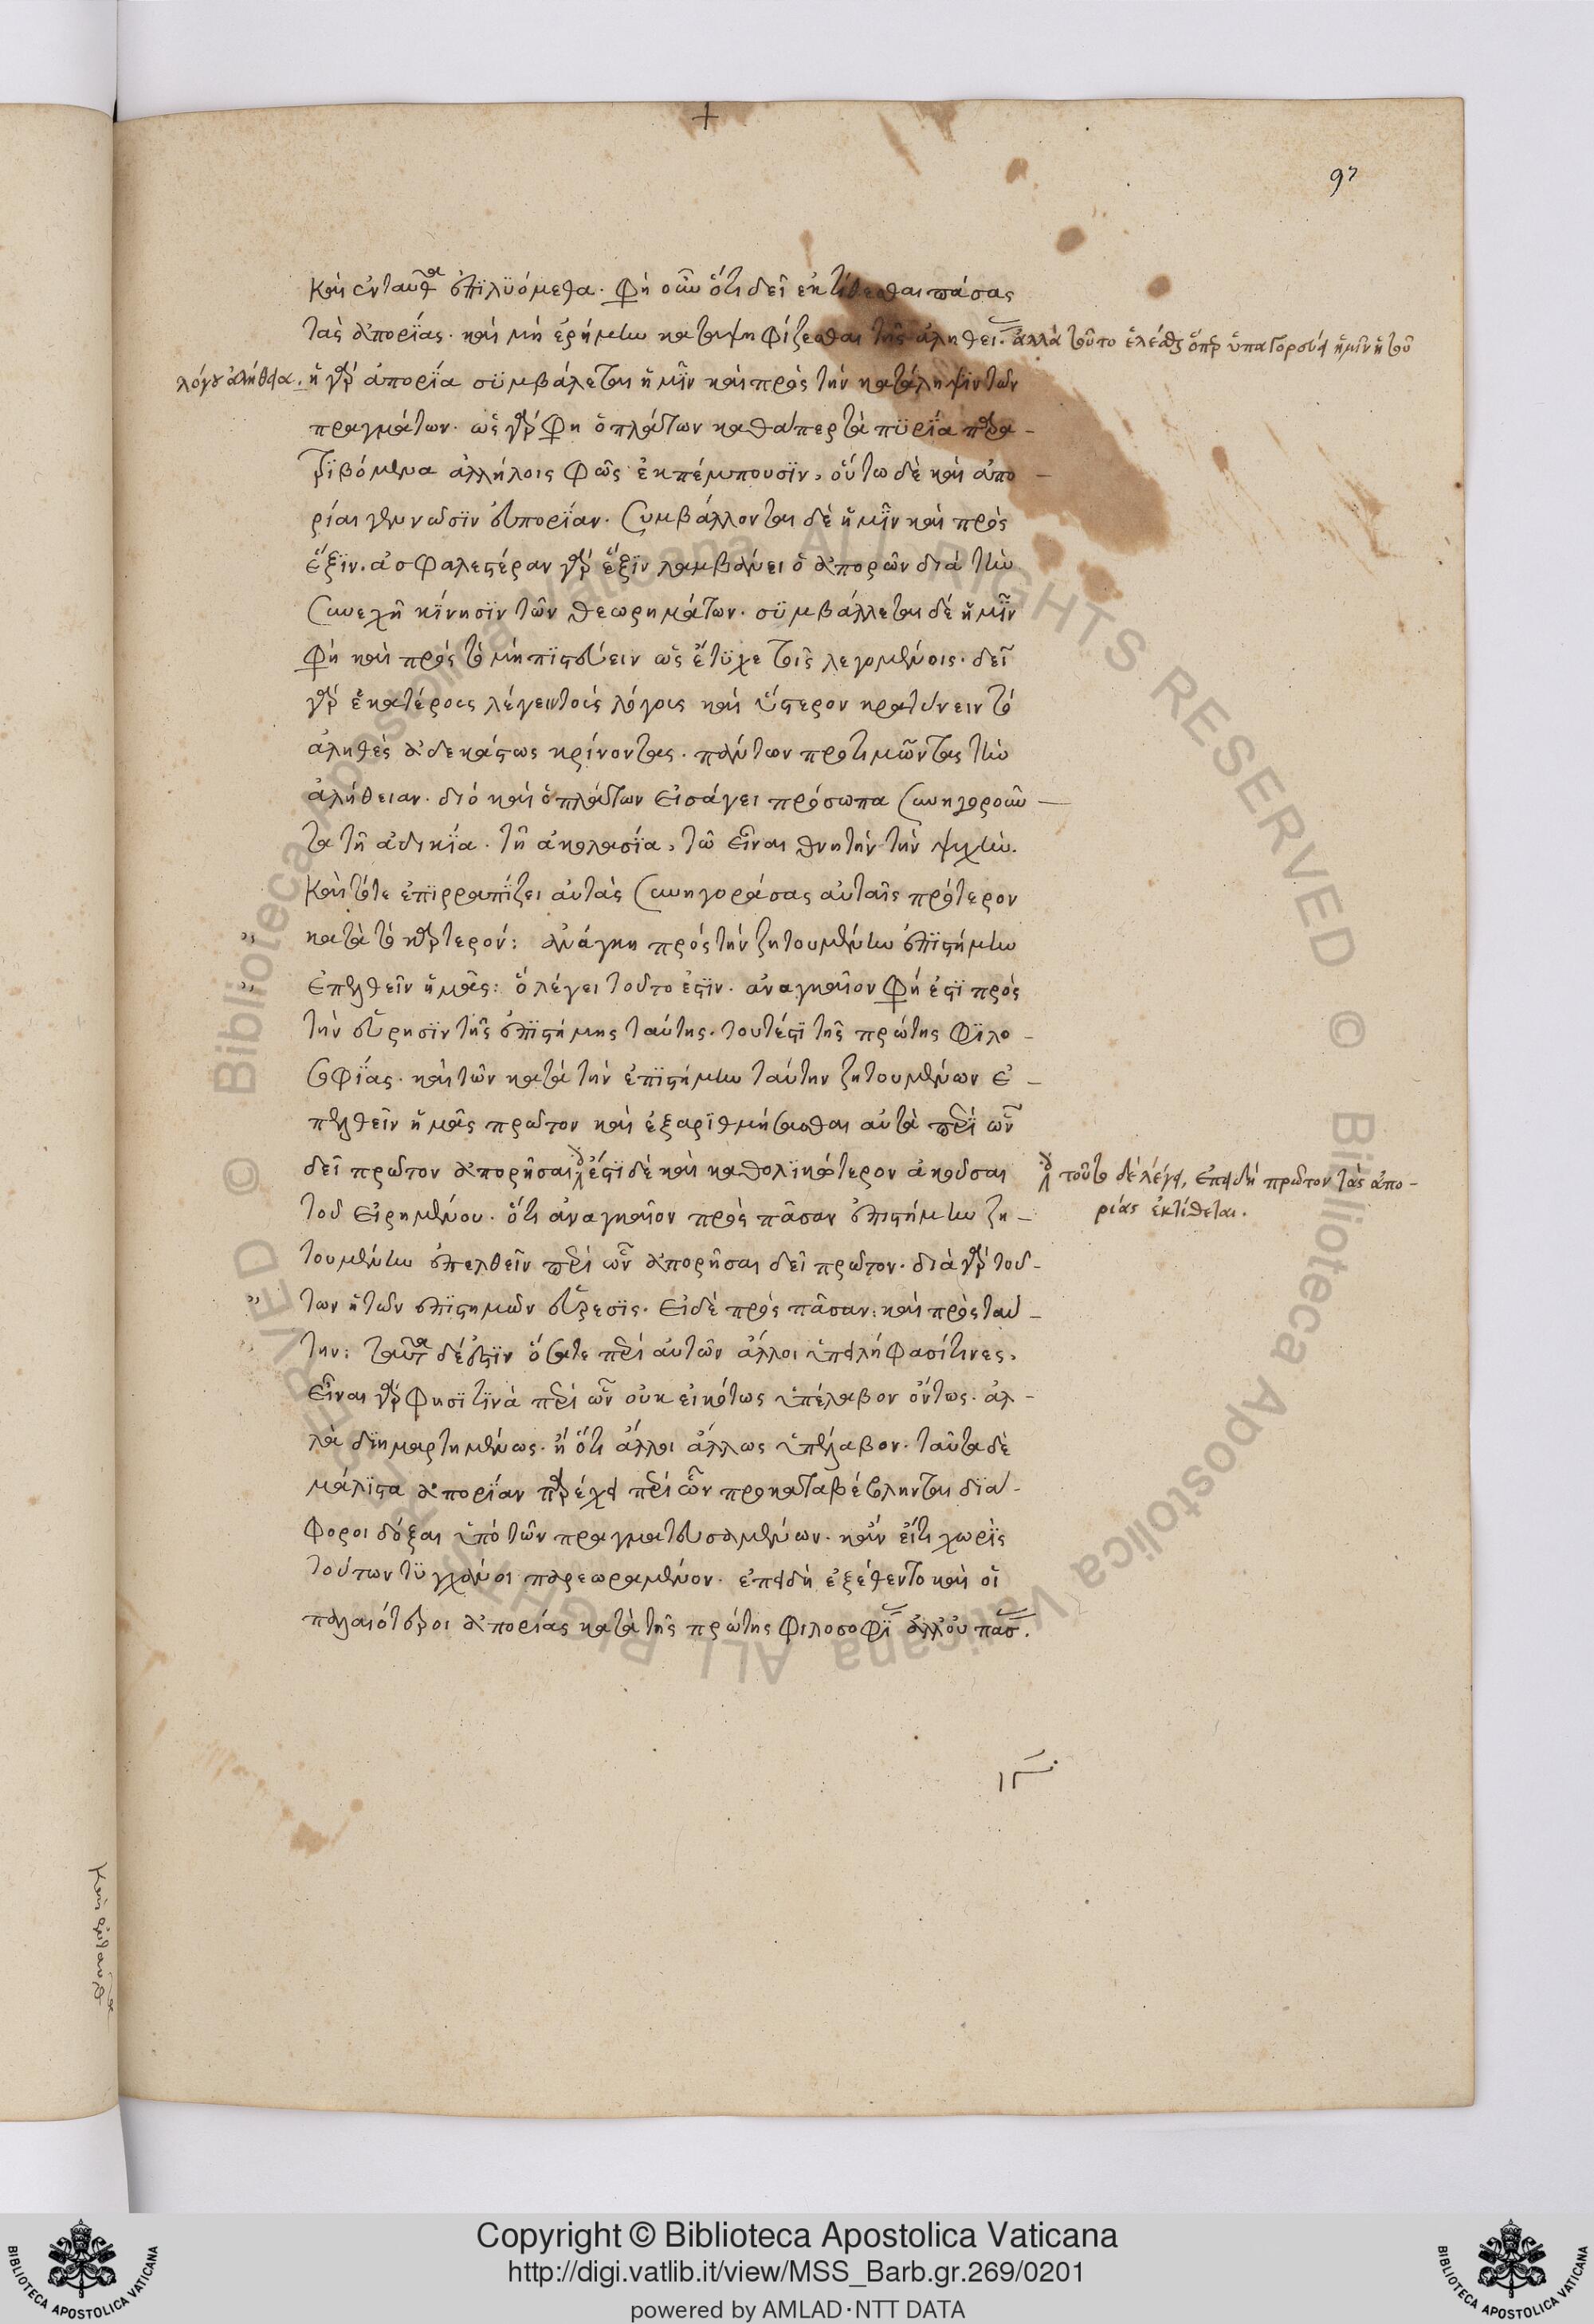 97
καὶ ἐνταῦθα ἐπιλϋόμεθα. φη οὖν ὅτι δεῖ ἐκτίθεσθαι πάσας
τὰς ἀπορίας. καὶ μὴ ἐρήμην καταψηφίζεσθαι τῆς ἀληθεί. ἀλλὰ τοῦτο ἑλέσθαι ὅπερ ὑπαγορεύει ἡμῖν ἡ τοῦ
λόγου ἀλήθεια. ἡ γὰρ ἀπορία συμβάλεται ἡμῖν καὶ πρὸς τὴν κατάληψιν τῶν
πραγμάτων. ὡς γὰρ φη ὁ πλάτων καθάπερ τὰ πυρία παρα-
τριβόμενα ἀλλήλοις φῶς ἐκπέμπουσιν, οὕτω δὲ καὶ ἀπο-
ρίαι γεννῶσιν εὐπορίαν. συμβάλλονται δὲ ἡμῖν καὶ πρὸς
ἕξιν. ἀσφαλεστέραν γὰρ ἕξιν λαμβάνει ὁ ἀπορῶν διὰ τὴν
συνεχῆ κίνησιν τῶν θεωρημάτων. συμβάλλεται δέ ἡμῖν
φὴ καὶ πρὸς τὸ μὴ πιστεύειν ὡς ἔτυχε τοῖς λεγομένοις. δεῖ
γὰρ ἑκατέροις λέγειν τοῖς λόγοις καὶ ὕστερον κρατύνειν τὸ
ἀληθὲς ἀδεκάστως κρίνοντας. πάντων προτιμῶντας τὴν
ἀλήθειαν. διὸ καὶ ὁ πλάτων εἰσάγει πρόσωπα συνηγοροῦν-
τα τῆ ἀδικία. τῆ ἀκολασία, τῶ εἶναι θνητὴν τὴν ψυχήν.
καὶ τότε ἐπιρραπίζει αὐτὰς συνηγοράσας αὐταῖς πρότερον
κατὰ τὸ καρτερόν: ἀνάγκη πρὸς τὴν ζητουμένην ἐπιστήμην
ἐπελθεῖν ἡμᾶς: ὃ λέγει τοῦτο ἐστιν. ἀναγκαῖον φή ἐστι πρὸς
τὴν εὕρησιν τῆς ἐπιστήμης ταύτης. τουτέστι τῆς πρώτης φιλο-
σοφίας. καὶ τῶν κατὰ τὴν ἐπιστήμην ταύτην ζητουμένων ἐ-
πελθεῖν ἡμᾶς πρῶτον καὶ ἐξαριθμήσασθαι αὐτὰ περὶ ὧν
δεῖ πρῶτον ἀπορῆσαι ἔστι δὲ καὶ καθολικώτερον ἀκοῦσαι
τοῦτο δὲ λέγει, ἐπειδὴ πρῶτον τὰς ἀπο-
ρίας ἐκτίθεται.
τοῦ εἰρημένου. ὅτι ἀναγκαῖον πρὸς πᾶσαν ἐπιστήμην ζη-
τουμένην ἐπελθεῖν περὶ ὧν ἀπορῆσαι δεῖ πρῶτον. διὰ γὰρ τού-
των ἡ τῶν ἐπιστημῶν εὕρεσις. εἰ δὲ πρὸς πᾶσαν: καὶ πρὸς ταύ-
την: ταῦτα δέ ἐστιν ὅσα τε περὶ αὐτῶν ἄλλοι ὑπειλήφασί τινες.
εἶναι γὰρ φησι τινὰ περὶ ὧν οὐκ εἰκότως ὑπέλαβον ὄντως. ἀλ-
λὰ διημαρτημένως. ἢ ὅτι ἄλλοι ἄλλως ὑπέλαβον. ταῦτα δὲ
μάλιστα ἀπορίαν παρέχει περὶ ὧν προκαταβέβληνται διά-
φοροι δόξαι ὑπὸ τῶν πραγματευσαμένων. κἂν εἴ τι χωρὶς
τούτων τυγχάνοι παρεωραμένον. ἐπειδὴ ἐξέθεντο καὶ οἱ
παλαιότεροι ἀπορίας κατὰ τῆς πρώτης φιλοσοφί ἀλλ' οὐ πάσ.
καὶ ἐνταῦθα
Copyright © Biblioteca Apostolica Vaticana
http://digi.vatlib.it/view/MSS_Barb.gr.269/0201
powered by AMLAD·NTT DATA
BIBLIOTECA APOSTOLICA VATICANA
BIBLIOTECA APOSTOLICA VATICANA
© Biblioteca Apostolica Vaticana ALL RIGHTS RESERVED © Biblioteca Apostolica Vaticana ALL RIGHTS RESERVED